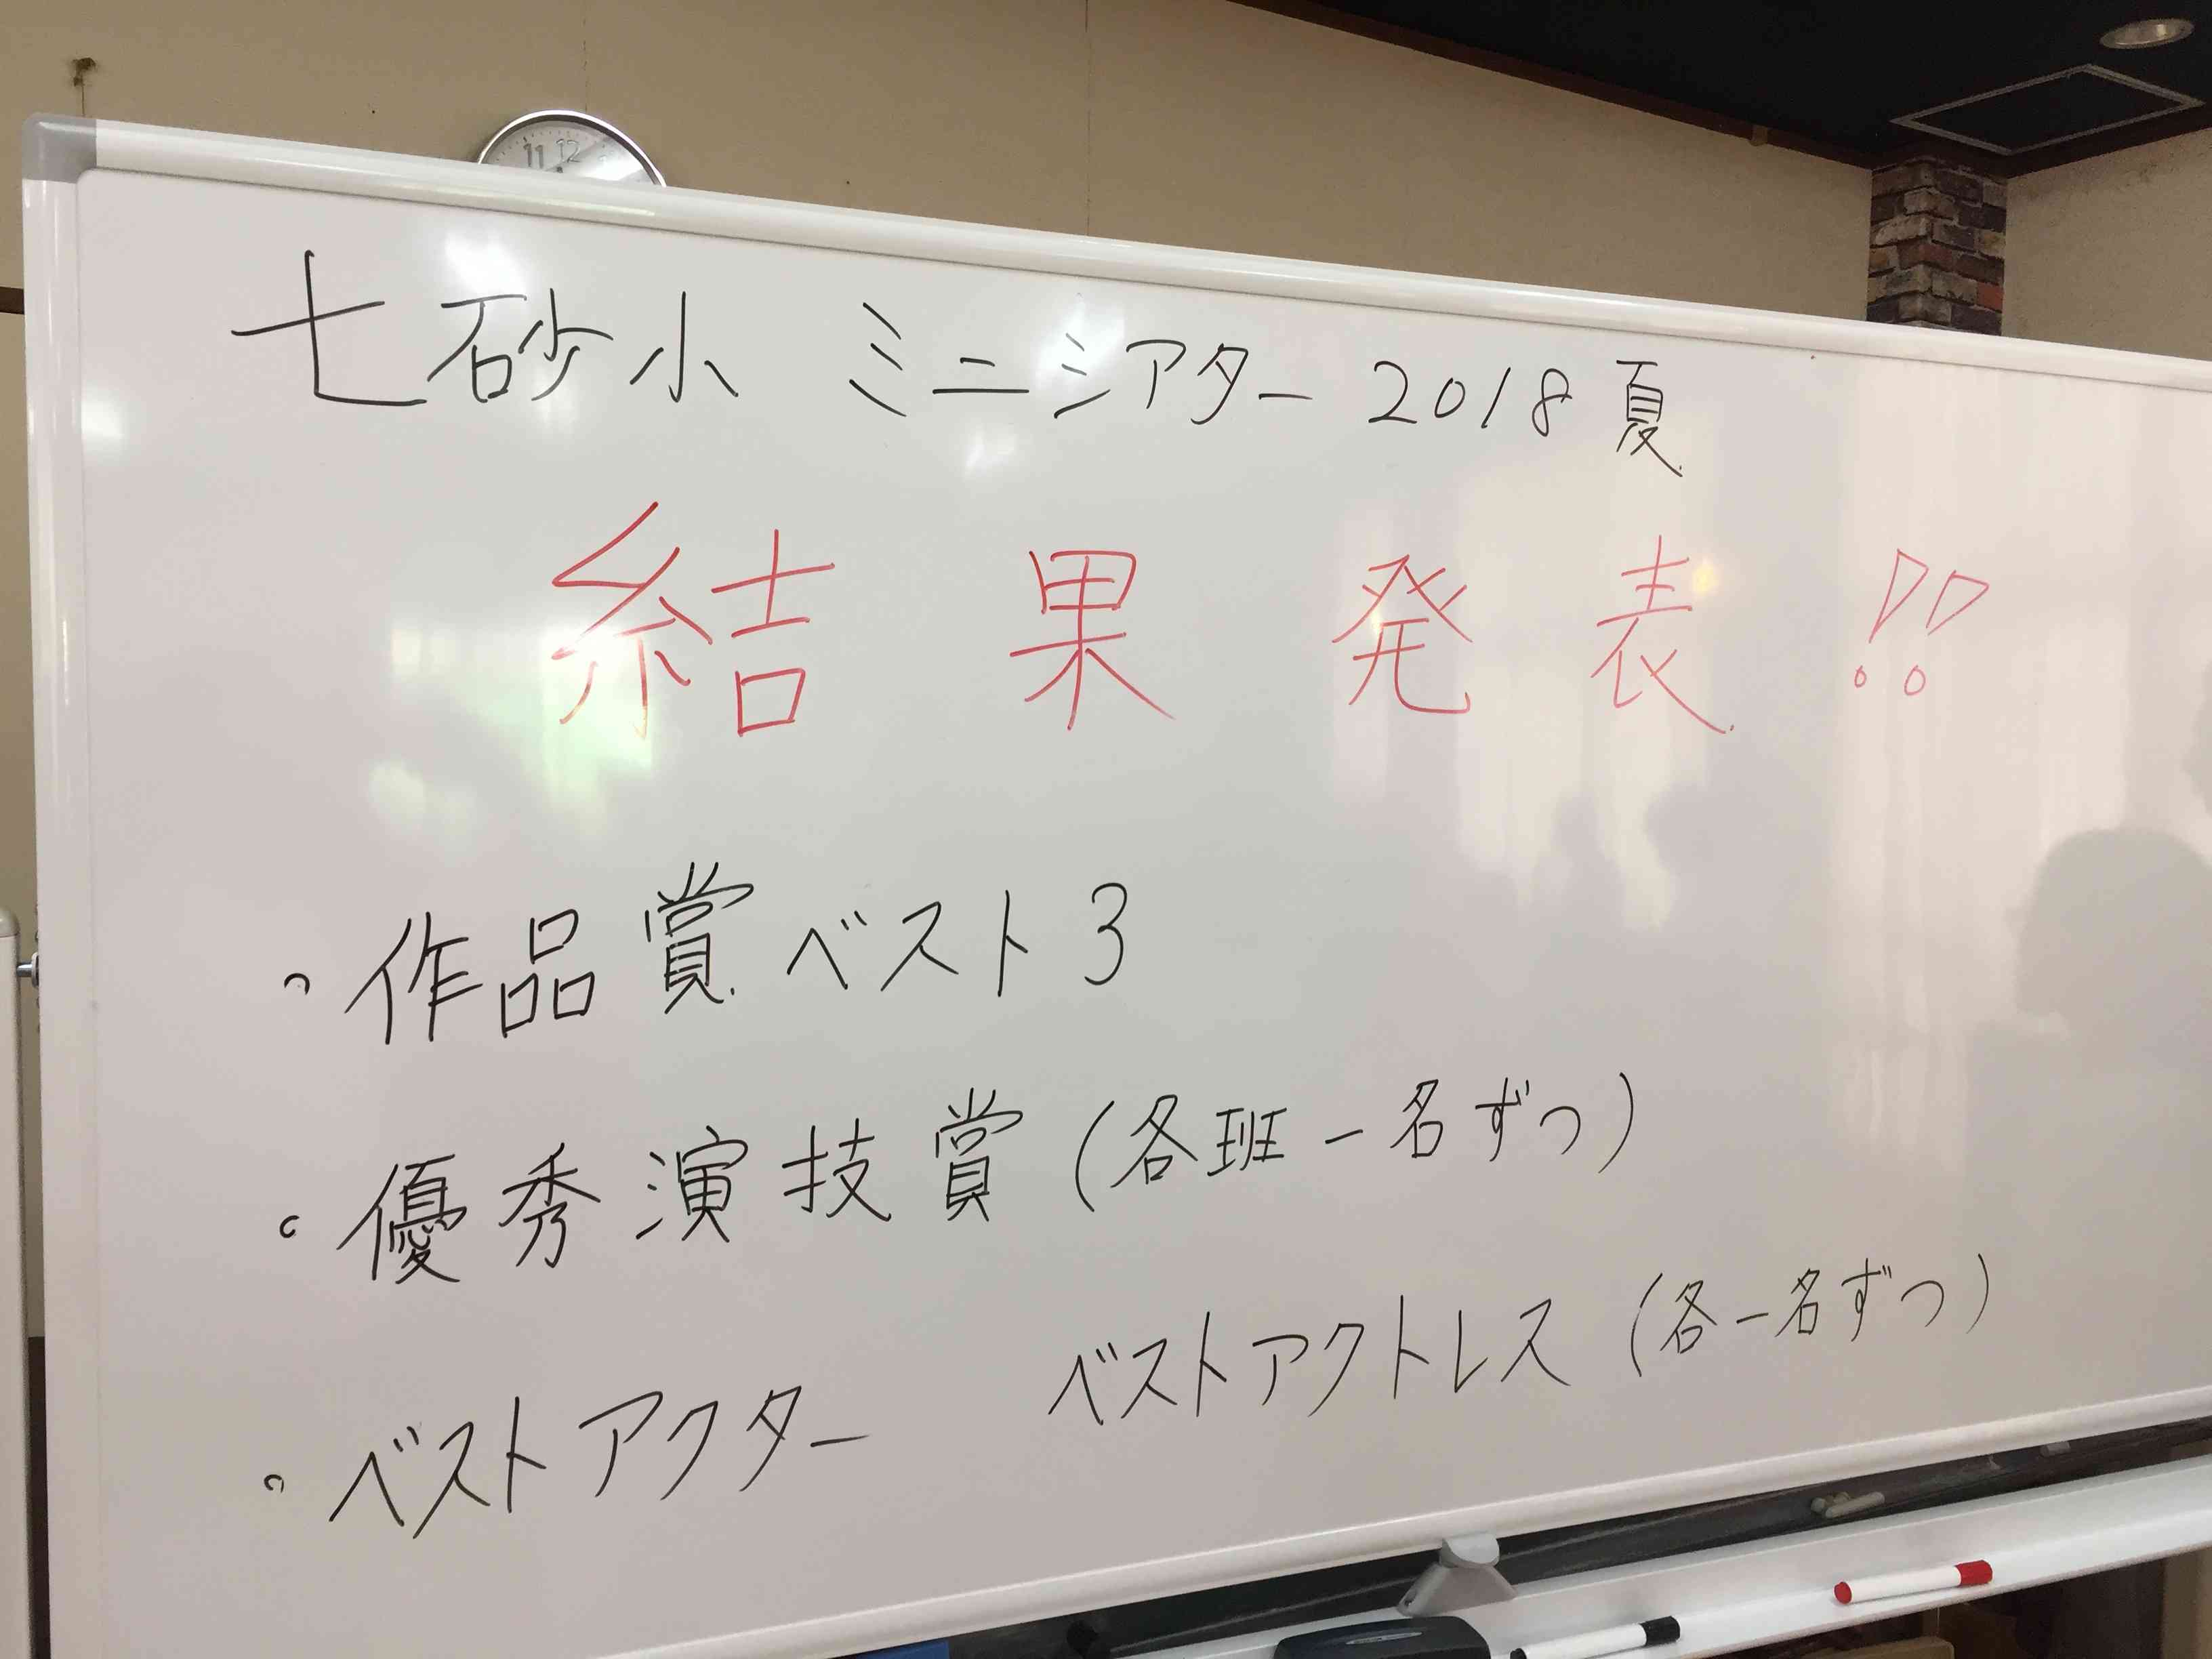 11 12
七砂小 ミニシアター 2018 夏
結果発表!!
・作品賞ベスト3
・優秀演技賞(各班一名ずつ)
・ベストアクター ベストアクトレス(各一名ずつ)